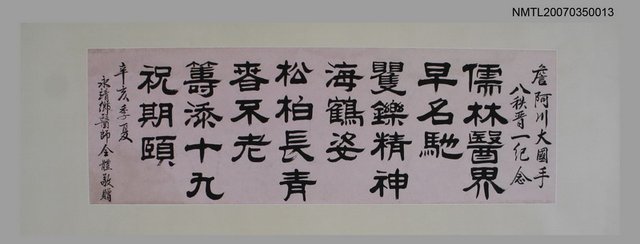 NMTL20070350013
詹阿川大國手
八秩晋一紀念
儒林醫界
早名馳
矍鑠精神
海鶴姿
松柏長青
春不老
籌添十九
祝期頤
辛亥季夏
永靖鄉醫師全體敬贈